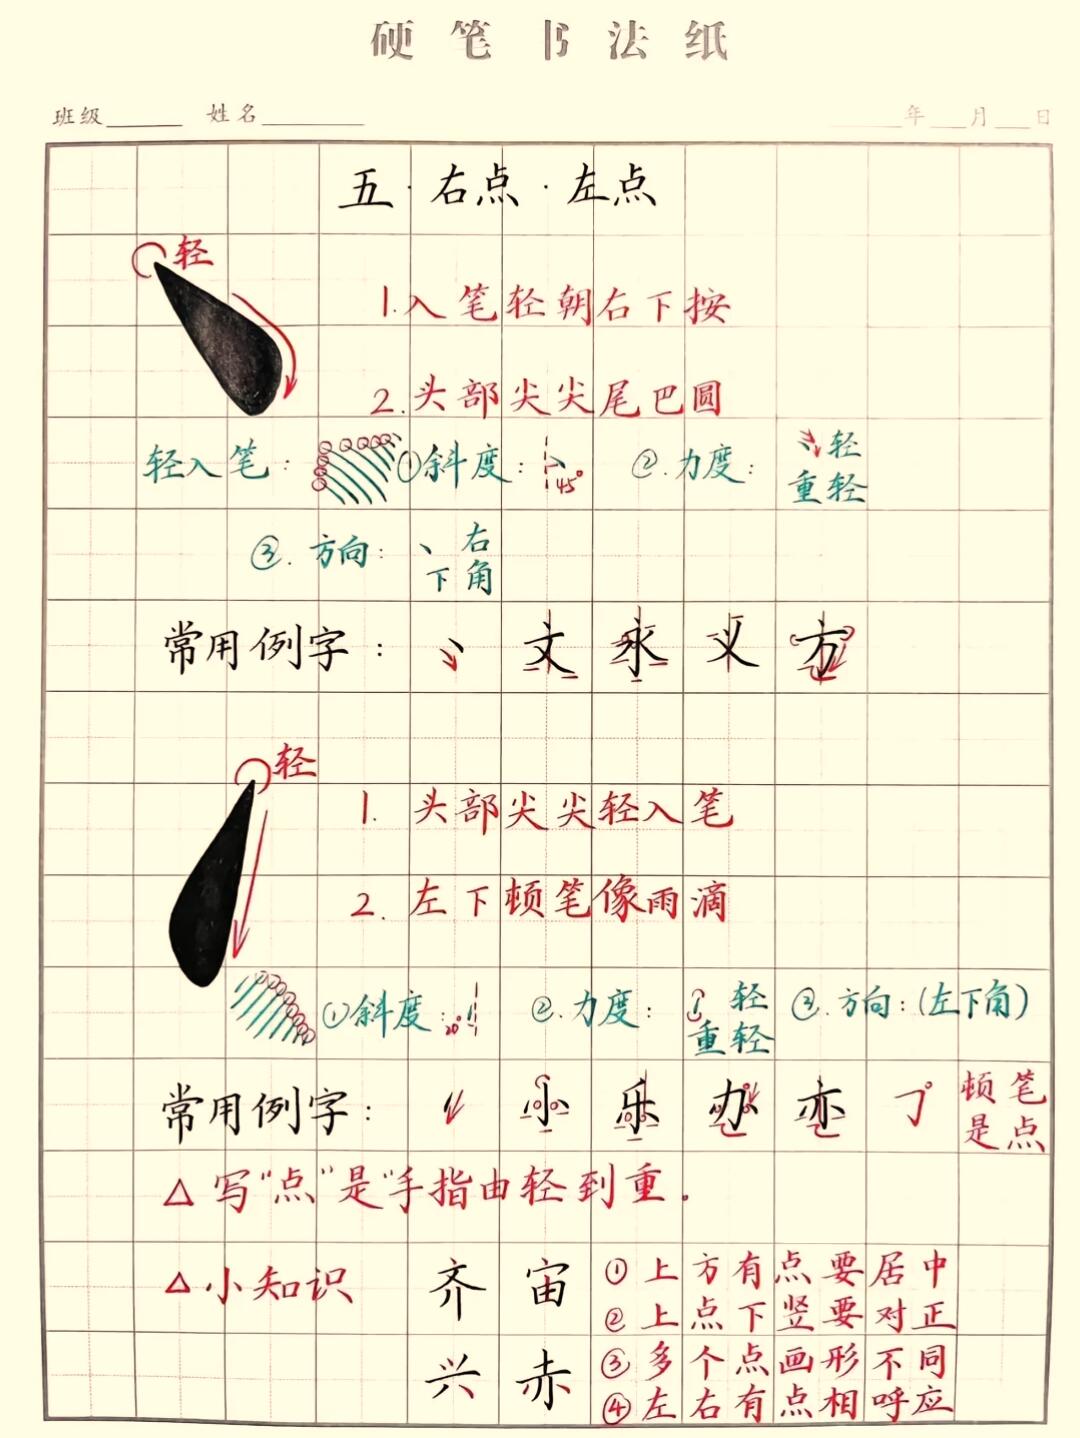 硬笔书法纸
班级 姓名 年 月 日
五·右点·左点
轻
1.入笔轻朝右下按
2.头部尖尖尾巴圆
轻入笔: ①斜度: 45° ②.力度: 轻
重轻
③.方向: 丶 右
下角
常用例字: 丶 文 永 义 方
轻
1. 头部尖尖轻入笔
2. 左下顿笔像雨滴
①斜度: 20° ②.力度: 轻 ③.方向:(左下角)
重轻
常用例字: 小 乐 办 亦 顿笔
是点
△写"点"是"手指由轻到重.
△小知识 齐 宙 ①上方有点要居中
②上点下竖要对正
兴 赤 ③多个点画形不同
④左右有点相呼应